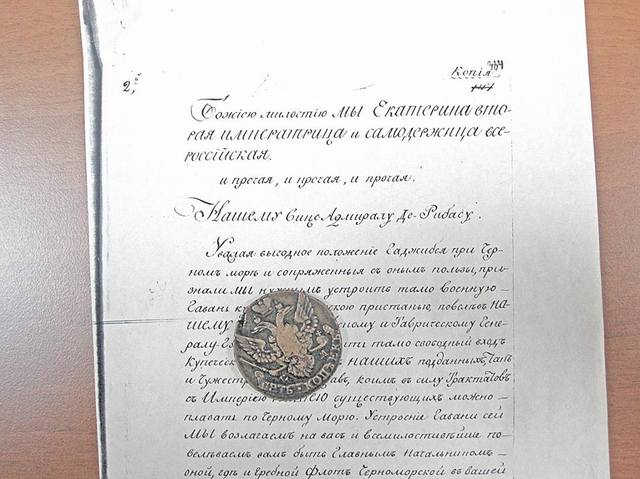 2,
Копія 344
Божіею милостію МЫ Екатерина вто
рая императрица и самодержица все-
россійская.
и протая, и протая, и протая.
Нашему Вице Адмиралу Де-Рибасу.
Уважая выгодное положеніе Гаджибея при Чер-
номъ морѣ и сопряженныя съ онымъ пользы, при-
знали МЫ нужнымъ устроить тамо военную
Гавани пристанью, повелѣвъ На-
шему и Таврическому Гене-
ралу тамо свободный входъ
Купечес нашихъ подданныхъ, такъ
и Чужестр коимъ въ силу Трактатовъ
съ Имперіею существующихъ можно
плавать по Черному Морю. Устроеніе Гавани сей
МЫ возлагаемъ на васъ и всемилостивѣйше по-
велѣваемъ вамъ быть Главнымъ Начальникомъ
оной, гдѣ и Гребной Флотъ Черноморской въ вашей
ПЯТЬ КОПѢ